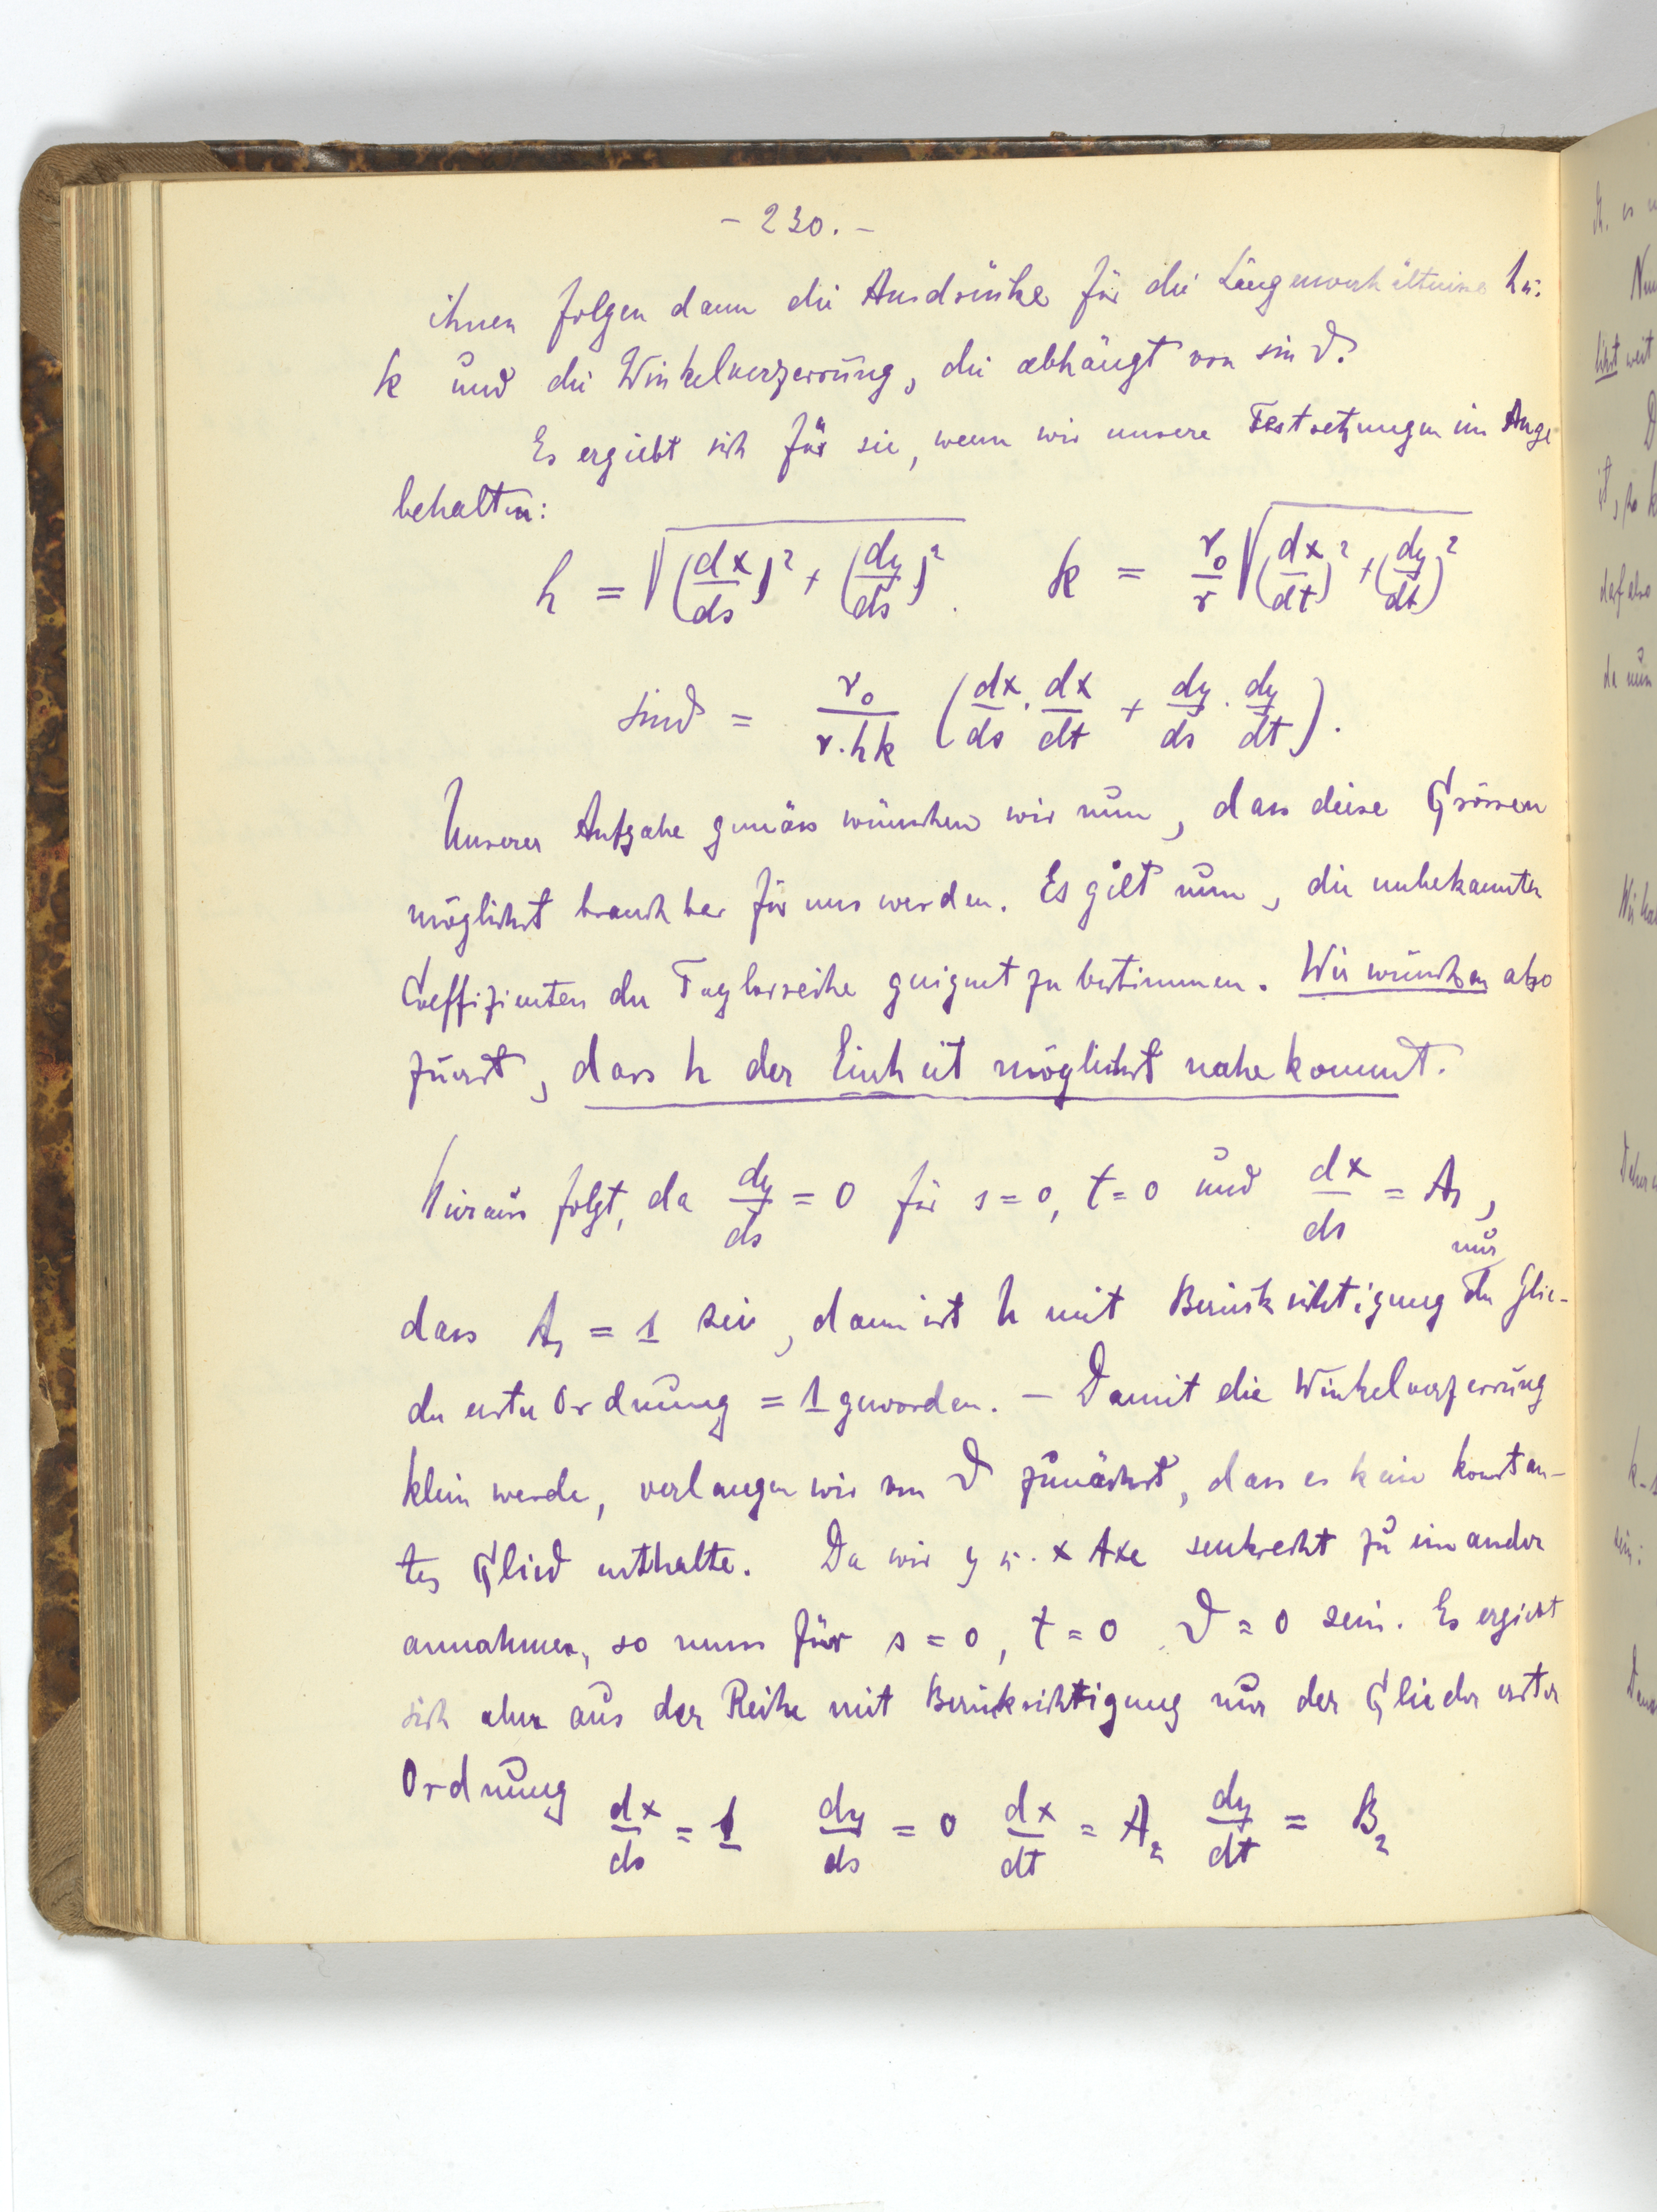 - 230. -
ihnen folgen dann die Ausdrücke für die Längenverhältnisse h u.
k und die Winkelverzerrung, die abhängt von sin ϑ.
Es ergiebt sich für sie, wenn wir unsere Festsetzungen im Auge
behalten:
h = √((dx/ds)² + (dy/ds)²). k = r₀/r √((dx/dt)² + (dy/dt)²)
sin ϑ = r₀/(r·hk) (dx/ds · dx/dt + dy/ds · dy/dt).
Unserer Aufgabe gemäss wünschen wir nun, dass diese Grössen
möglichst brauchbar für uns werden. Es gilt nun, die unbekannten
Coeffizienten der Taylorreihe geeignet zu bestimmen. Wir wünschen also
zuerst, dass h der Einheit möglichst nahe kommt.
Hieraus folgt, da dy/ds = 0 für s = 0, t = 0 und dx/ds = A₁,
dass A₁ = 1 sei, dann ist h mit Berücksichtigung nur der Glie-
der erster Ordnung = 1 geworden. – Damit die Winkelverzerrung
klein werde, verlangen wir von ϑ zunächst, dass es kein konstan-
tes Glied enthalte. Da wir y u. x Axe senkrecht zu einander
annahmen, so muss für s = 0, t = 0 ϑ = 0 sein. Es ergiebt
sich aber aus der Reihe mit Berücksichtigung nur der Glieder erster
Ordnung
dx/ds = 1 dy/ds = 0 dx/dt = A₂ dy/dt = B₂